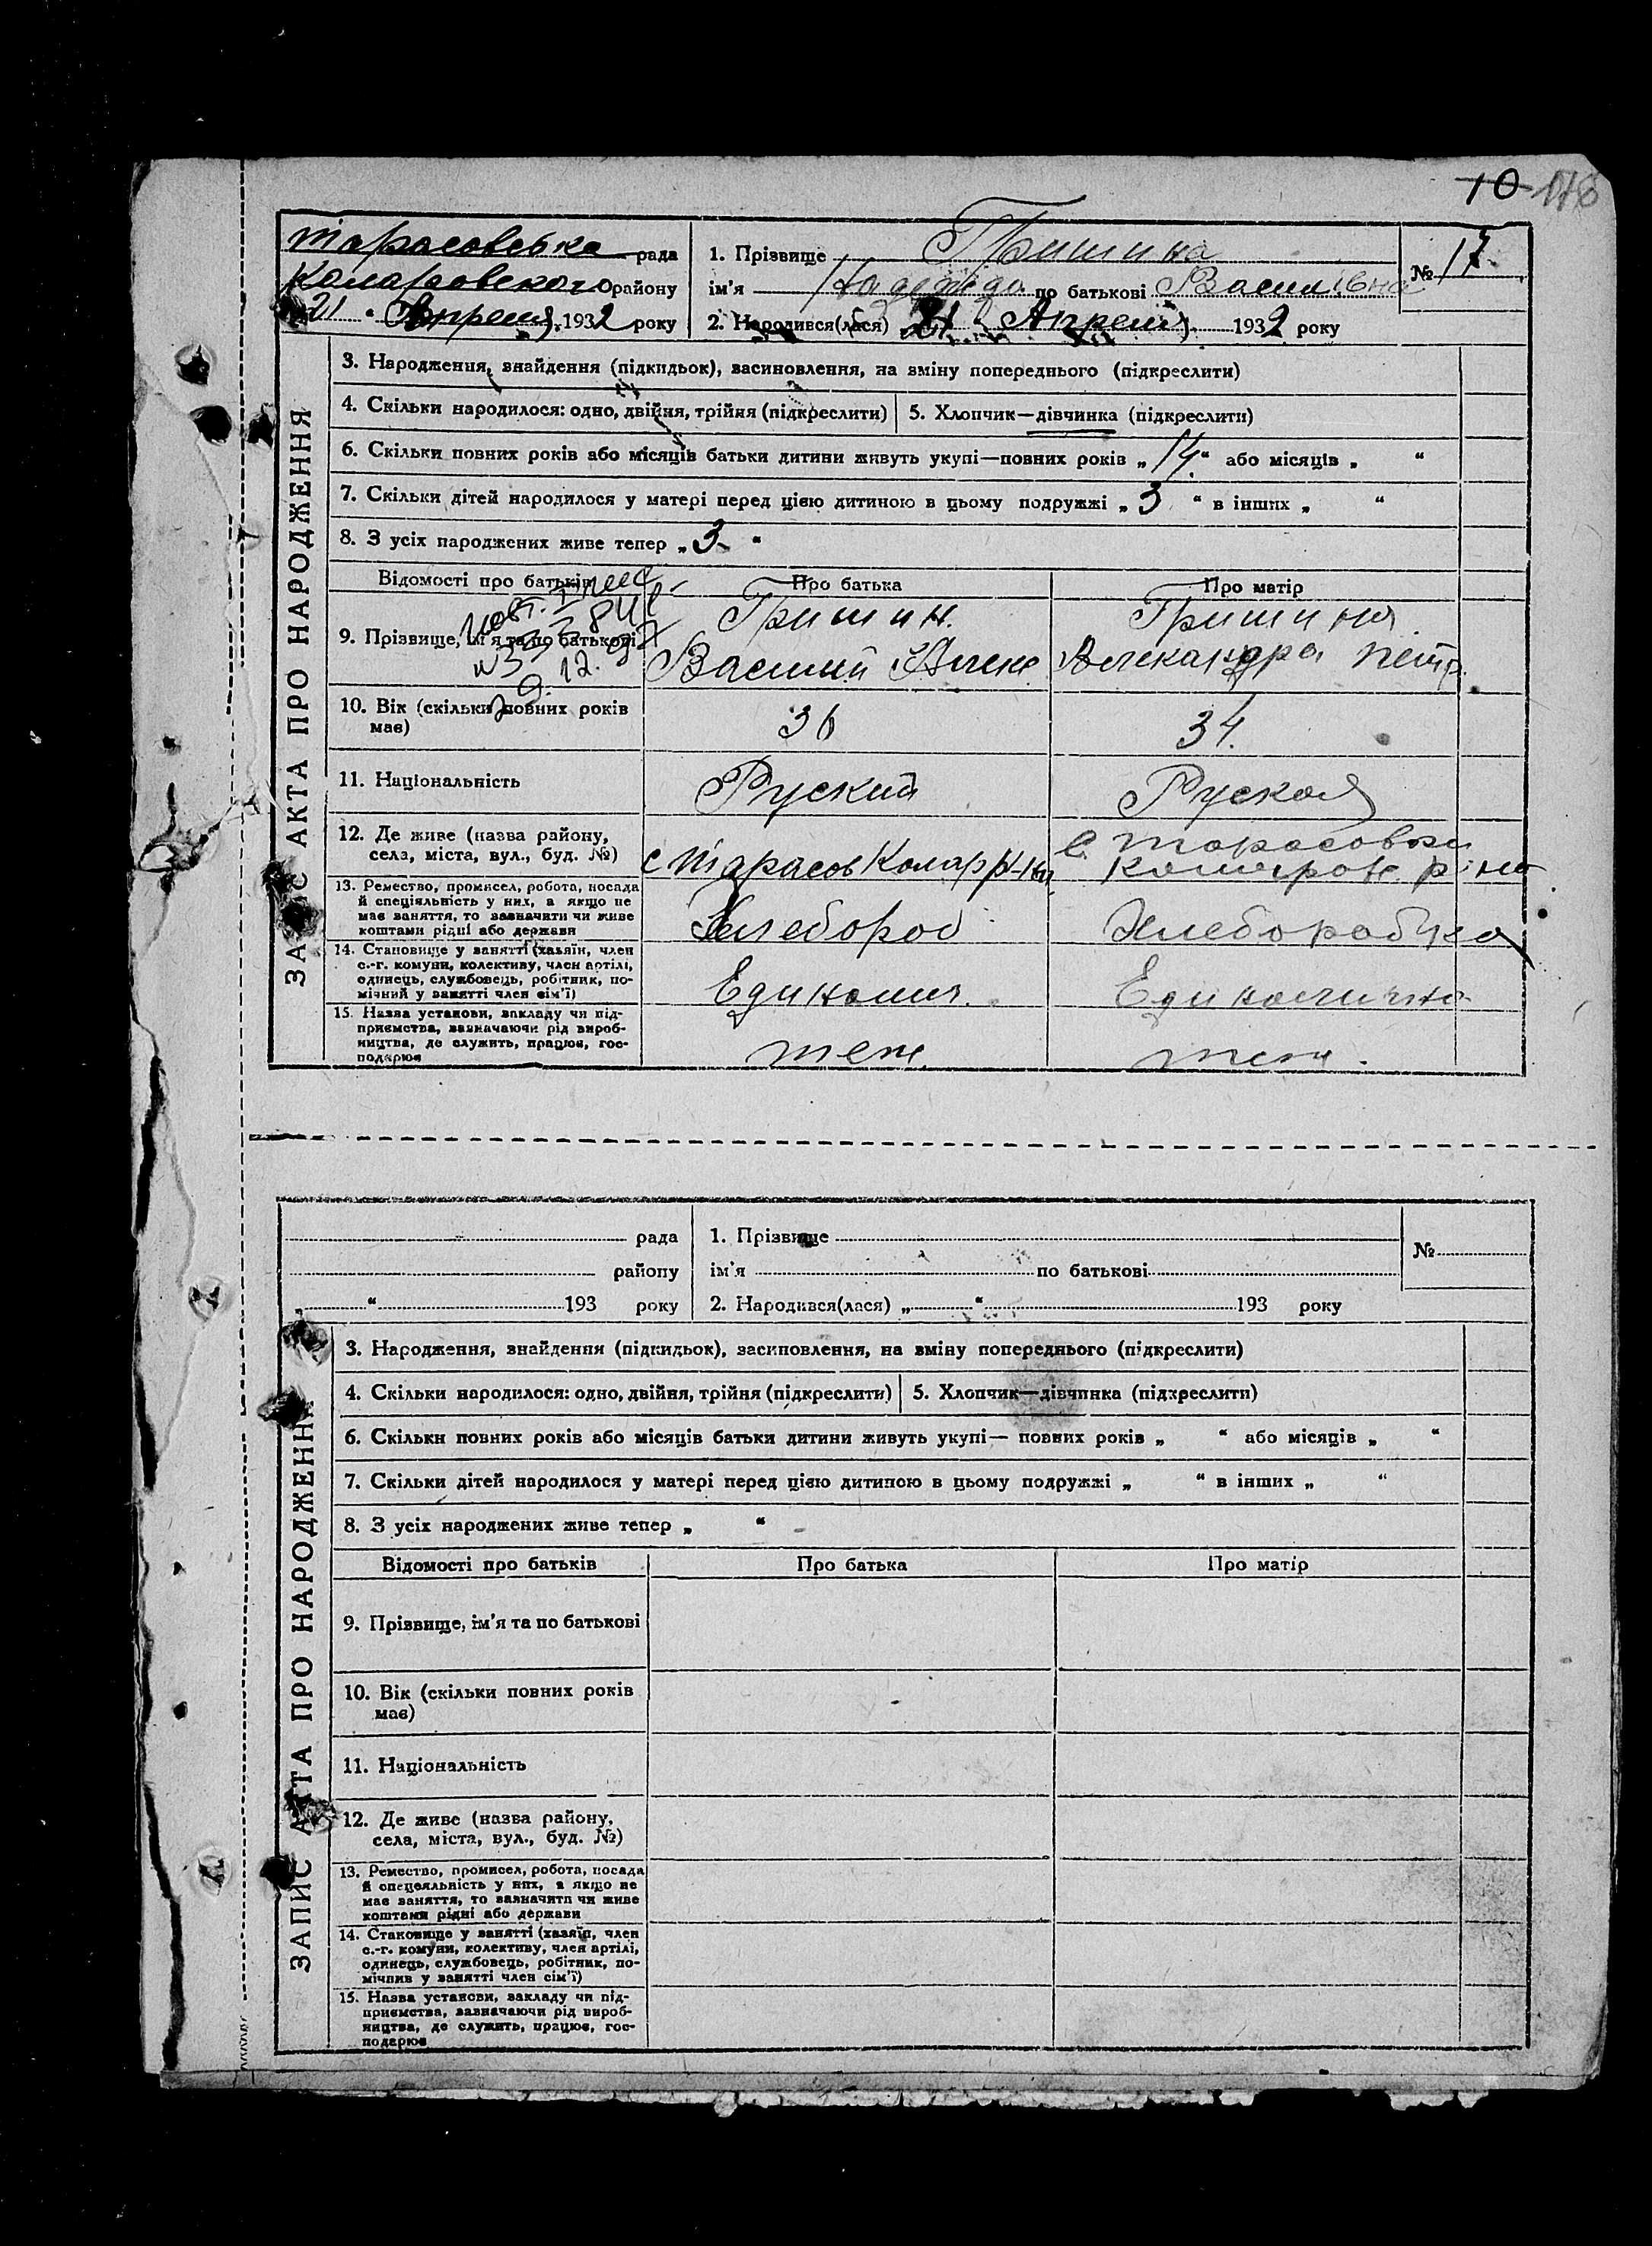 10 178
Тарасовська рада
Коларовского району
21 Апреля 1932 року
1. Прізвище Гришина
№ 17
ім'я Надежда по батькові Василівна
2. Народився(лася) 21 Апреля 1932 року
ЗАПИС АКТА ПРО НАРОДЖЕННЯ
3. Народження, знайдення (підкидьок), засиновлення, на зміну попереднього (підкреслити)
4. Скільки народилося: одно, двійня, трійня (підкреслити) 5. Хлопчик—дівчинка (підкреслити)
6. Скільки повних років або місяців батьки дитини живуть укупі—повних років „ 14 “ або місяців „ “
7. Скільки дітей народилося у матері перед цією дитиною в цьому подружжі „ 3 “ в інших „ “
8. З усіх народжених живе тепер „ 3 “
Відомості про батьків Про батька Про матір
9. Прізвище, ім'я та по батькові
Гришин. Гришина
Василий Алекс Александра Петр.
10. Вік (скільки повних років має) 36 34.
11. Національність Руский Руская
12. Де живе (назва району, села, міста, вул., буд. №)
с Тарасов Колар р-на
с. Тарасовки
Коларовс р-на
13. Ремество, промисел, робота, посада
й спеціяльність у них, а якщо не
має заняття, то зазначити чи живе
коштами рідні або держави
Хлебороб Хлеборобка
14. Становище у занятті (хазяїн, член
с.-г. комуни, колективу, член артілі,
одинець, службовець, робітник, по-
мічний у занятті член сім'ї)
Еднолич.
15. Назва установи, закладу чи під-
приємства, зазначаючи рід вироб-
ництва, де служить, працює, гос-
подарює
теж теж.
рада
району
„ “ 193 року
1. Прізвище
№
ім'я по батькові
2. Народився(лася) „ “ 193 року
ЗАПИС АКТА ПРО НАРОДЖЕННЯ
3. Народження, знайдення (підкидьок), засиновлення, на зміну попереднього (підкреслити)
4. Скільки народилося: одно, двійня, трійня (підкреслити) 5. Хлопчик—дівчинка (підкреслити)
6. Скільки повних років або місяців батьки дитини живуть укупі— повних років „ “ або місяців „ “
7. Скільки дітей народилося у матері перед цією дитиною в цьому подружжі „ “ в інших „ “
8. З усіх народжених живе тепер „ “
Відомості про батьків Про батька Про матір
9. Прізвище, ім'я та по батькові
10. Вік (скільки повних років
має)
11. Національність
12. Де живе (назва району,
села, міста, вул., буд. №)
13. Ремество, промисел, робота, посада
й спецеяльність у них, а якщо не
має заняття, то зазначити чи живе
коштами рідні або держави
14. Становище у занятті (хазяїн, член
с.-г. комуни, колективу, член артілі,
одинець, службовець, робітник, по-
мічний у занятті член сім'ї)
15. Назва установи, закладу чи під-
приємства, зазначаючи рід вироб-
ництва, де служить, працює, гос-
подарює